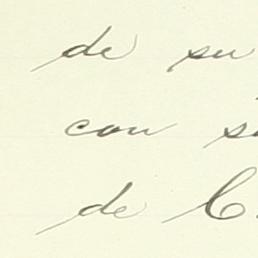 de su
con
de C